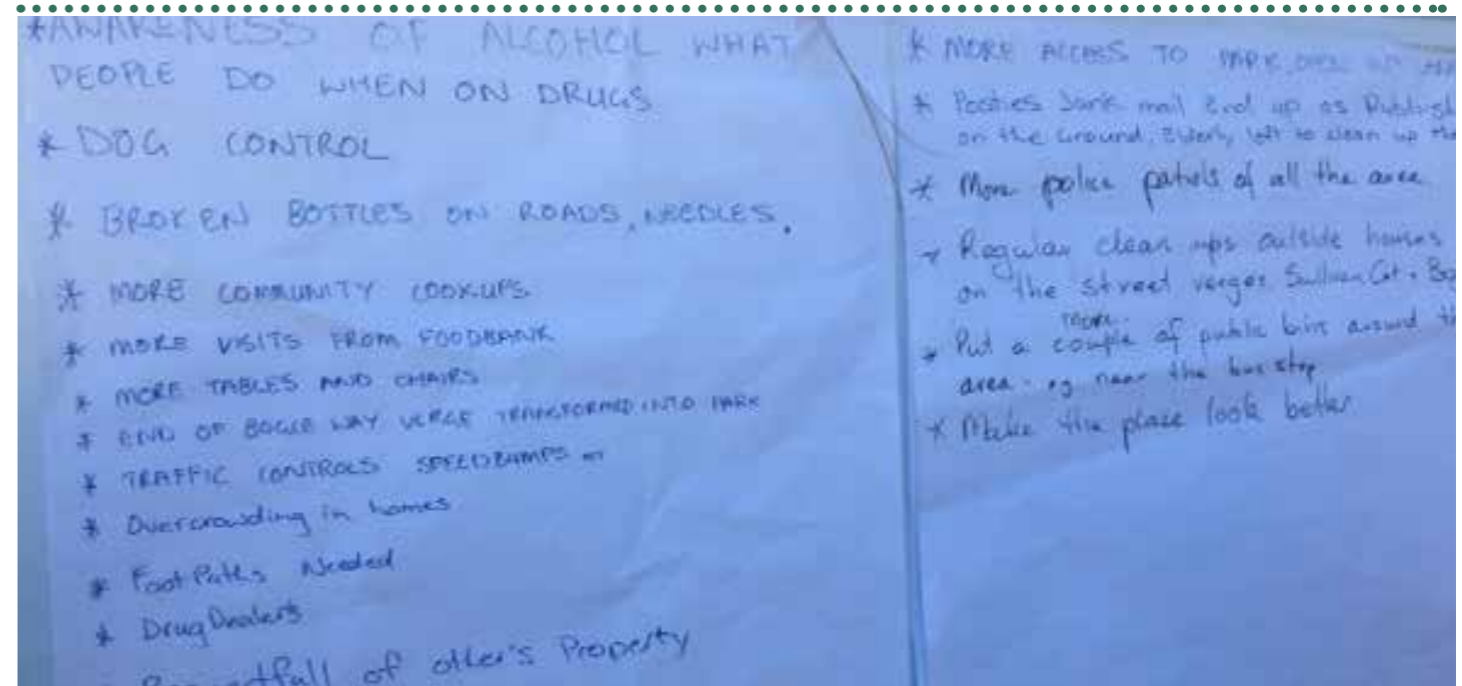 *AWARENESS OF ALCOHOL WHAT
PEOPLE DO WHEN ON DRUGS
* DOG CONTROL
* BROKEN BOTTLES ON ROADS, NEEDLES.
* MORE COMMUNITY COOKUPS
* MORE VISITS FROM FOODBANK
* MORE TABLES AND CHAIRS
* END OF BOGUE WAY VERGE TRANSFORMED INTO PARK
* TRAFFIC CONTROLS SPEEDBUMPS
* Overcrowding in homes
* FootPaths Needed
* Drug Dealers
of other's Property
* MORE ACCESS TO PARK
* Posties Junk mail End up as
on the Ground, Elderly left to clean up
* More police patrols of all the area
* Regular clean ups outside houses
on the street verges Sullivan Crt
more
* Put a couple of public bins around
area. eg near the bus stop
* Make the place look better